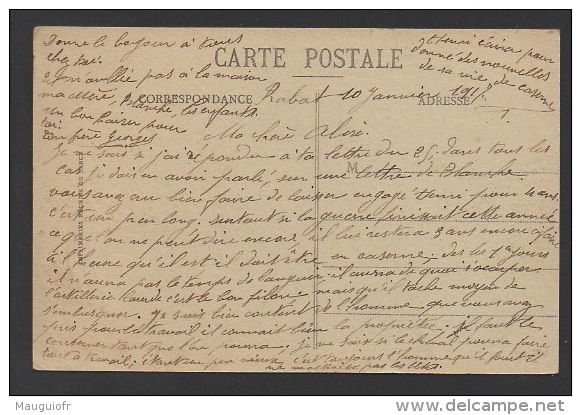 Donne le bonjour à tous
chez toi.
n'oublie pas à la maison
ma mère, Blanche, les enfants.
un bon baiser pour
toi
ton père Georges
Henri écrira pour
donner des nouvelles
de sa vie de caserne
CARTE POSTALE
CORRESPONDANCE
ADRESSE
Rabat 10 Janvier 191
Ma chère Aline.
Je ne sais si j'ai répondu à ta lettre du 25, dans tous les
cas je dois en avoir parlé, sur une lettre de Blanche.
M
vous avez eu bien faire de laisser engagé Henri pour 4 ans.
c'est un peu long. surtout si la guerre finissait cette année
ce que on ne peut dire encore, il lui restera 3 ans encore à faire
à l'heure qu'il est il doit être en caserne, les 1ers jours
il n'aura pas le temps de languir il aura de quoi s'occuper
l'artillerie lourde c'est le bon filon mais qu'il tache moyen de
s'embusquer. Je suis bien content de l'homme que vous avez
pris pour le travail il connait bien la propriété. Il faut le
conserver tant que l'on pourra. je ne sais si le cheval pourra faire
tout le travail; étant un peu vieux c'est toujours l'homme qu'il faut il
ne maltraite pas les bêtes.
Mauguiofr
www.delcampe.net